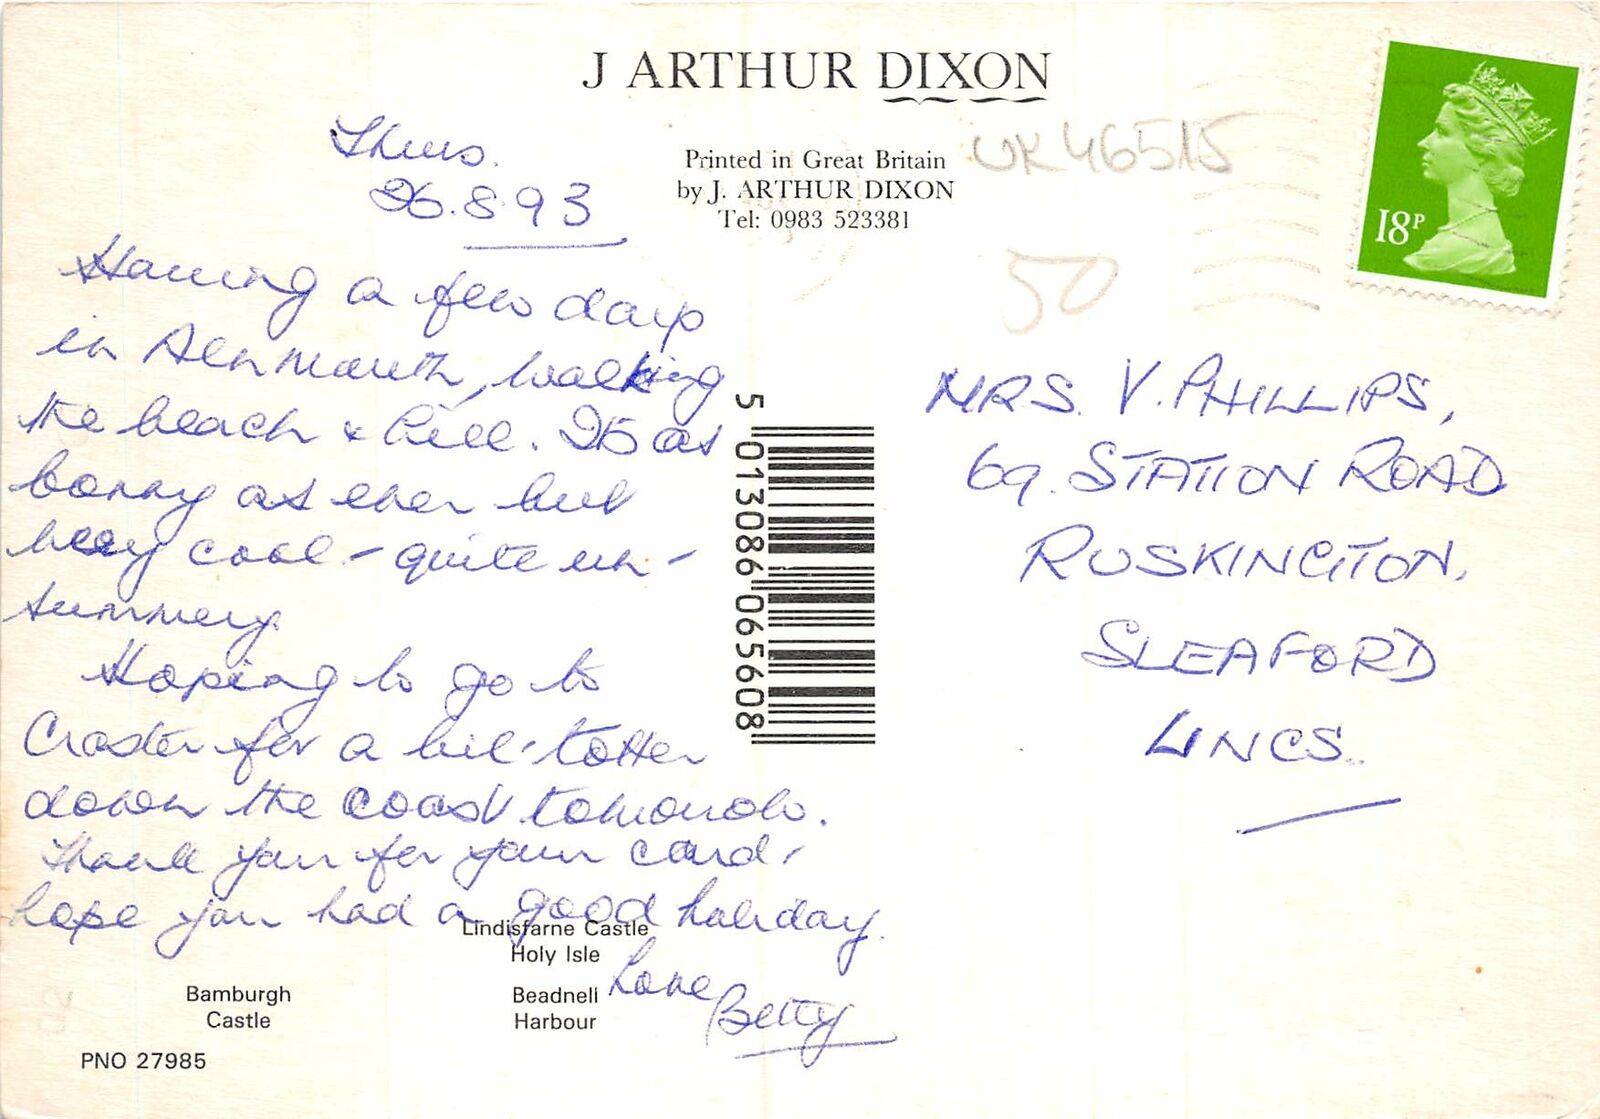 J ARTHUR DIXON
Printed in Great Britain
by J. ARTHUR DIXON
Tel: 0983 523381
UK46515
50
18P
Thurs.
26.8.93
Having a few days
in Alnmouth, walking
the beach & hill. Its as
bonny as ever but
very cool - quite un-
summery.
Hoping to go to
Craster for a bit totter
down the coast tomorrow.
Thank you for your card,
hope you had a good holiday.
Love
Betty
MRS. V. PHILLIPS,
69. STATION ROAD
RUSKINGTON,
SLEAFORD
LINCS.
5 013086 065608
Lindisfarne Castle
Holy Isle
Bamburgh
Castle
Beadnell
Harbour
PNO 27985